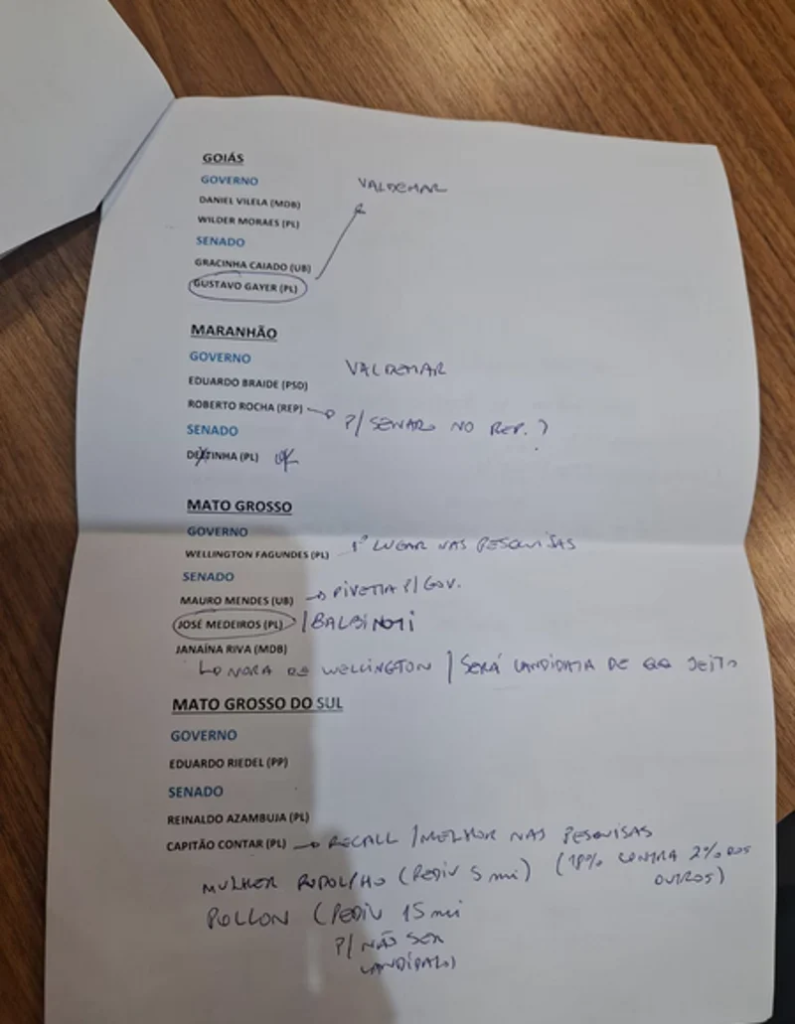 GOIÁS
GOVERNO
VALDEMAR
DANIEL VILELA (MDB)
WILDER MORAES (PL)
SENADO
GRACINHA CAIADO (UB)
GUSTAVO GAYER (PL)
MARANHÃO
GOVERNO
VALDEMAR
EDUARDO BRAIDE (PSD)
ROBERTO ROCHA (REP) P/ SENADO NO REP. ?
SENADO
DETINHA (PL) OK
MATO GROSSO
GOVERNO
WELLINGTON FAGUNDES (PL) 1º LUGAR NAS PESQUISAS
SENADO
MAURO MENDES (UB) PIVETTA P/ GOV.
JOSÉ MEDEIROS (PL) / BALBINOTI
JANAÍNA RIVA (MDB)
NORA DE WELLINGTON / SERÁ CANDIDATA DE QQ JEITO
MATO GROSSO DO SUL
GOVERNO
EDUARDO RIEDEL (PP)
SENADO
REINALDO AZAMBUJA (PL)
CAPITÃO CONTAR (PL) RECALL / MELHOR NAS PESQUISAS
MULHER RODOLFHO (PEDIU 5 mi) (18% CONTRA 2% DOS OUTROS)
POLLON (PEDIU 15 mi
P/ NÃO SER
CANDIDATO)